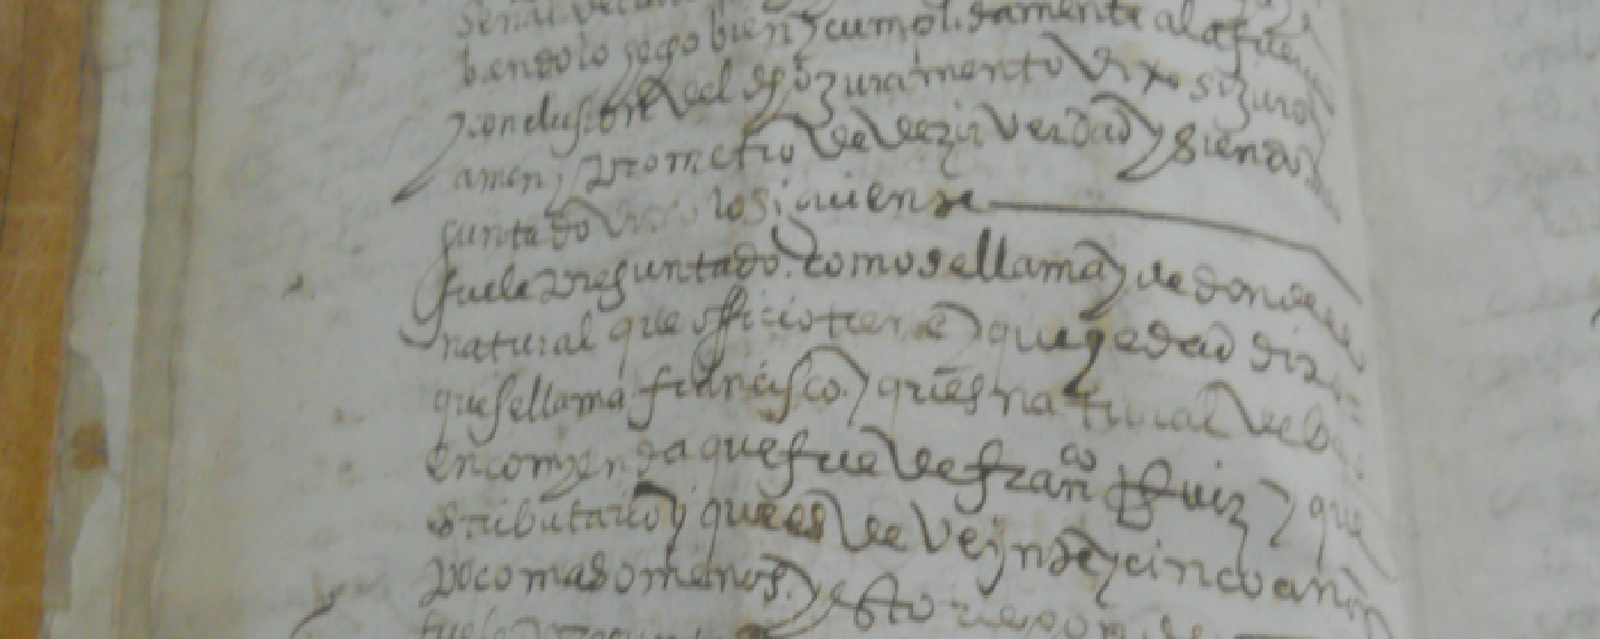 señal de la
biendolo fecho bien y cumplidamente a la fuer
y conclusion del dho juramento dixo si juro
amen y prometio de dezir verdad y siendo
guntado dixo lo siguiente
fuele preguntado como se llama y de donde es
natural que officio tiene y que hedad dixo
que se llama francisco y ques natural de
encomienda que fue de franco Ruiz y que
es tributario y que es de veinte y cinco años
poco mas o menos y esto responde
fuele preguntado